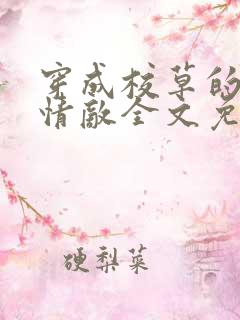 穿成校草的
情敌全文免
硬梨菜